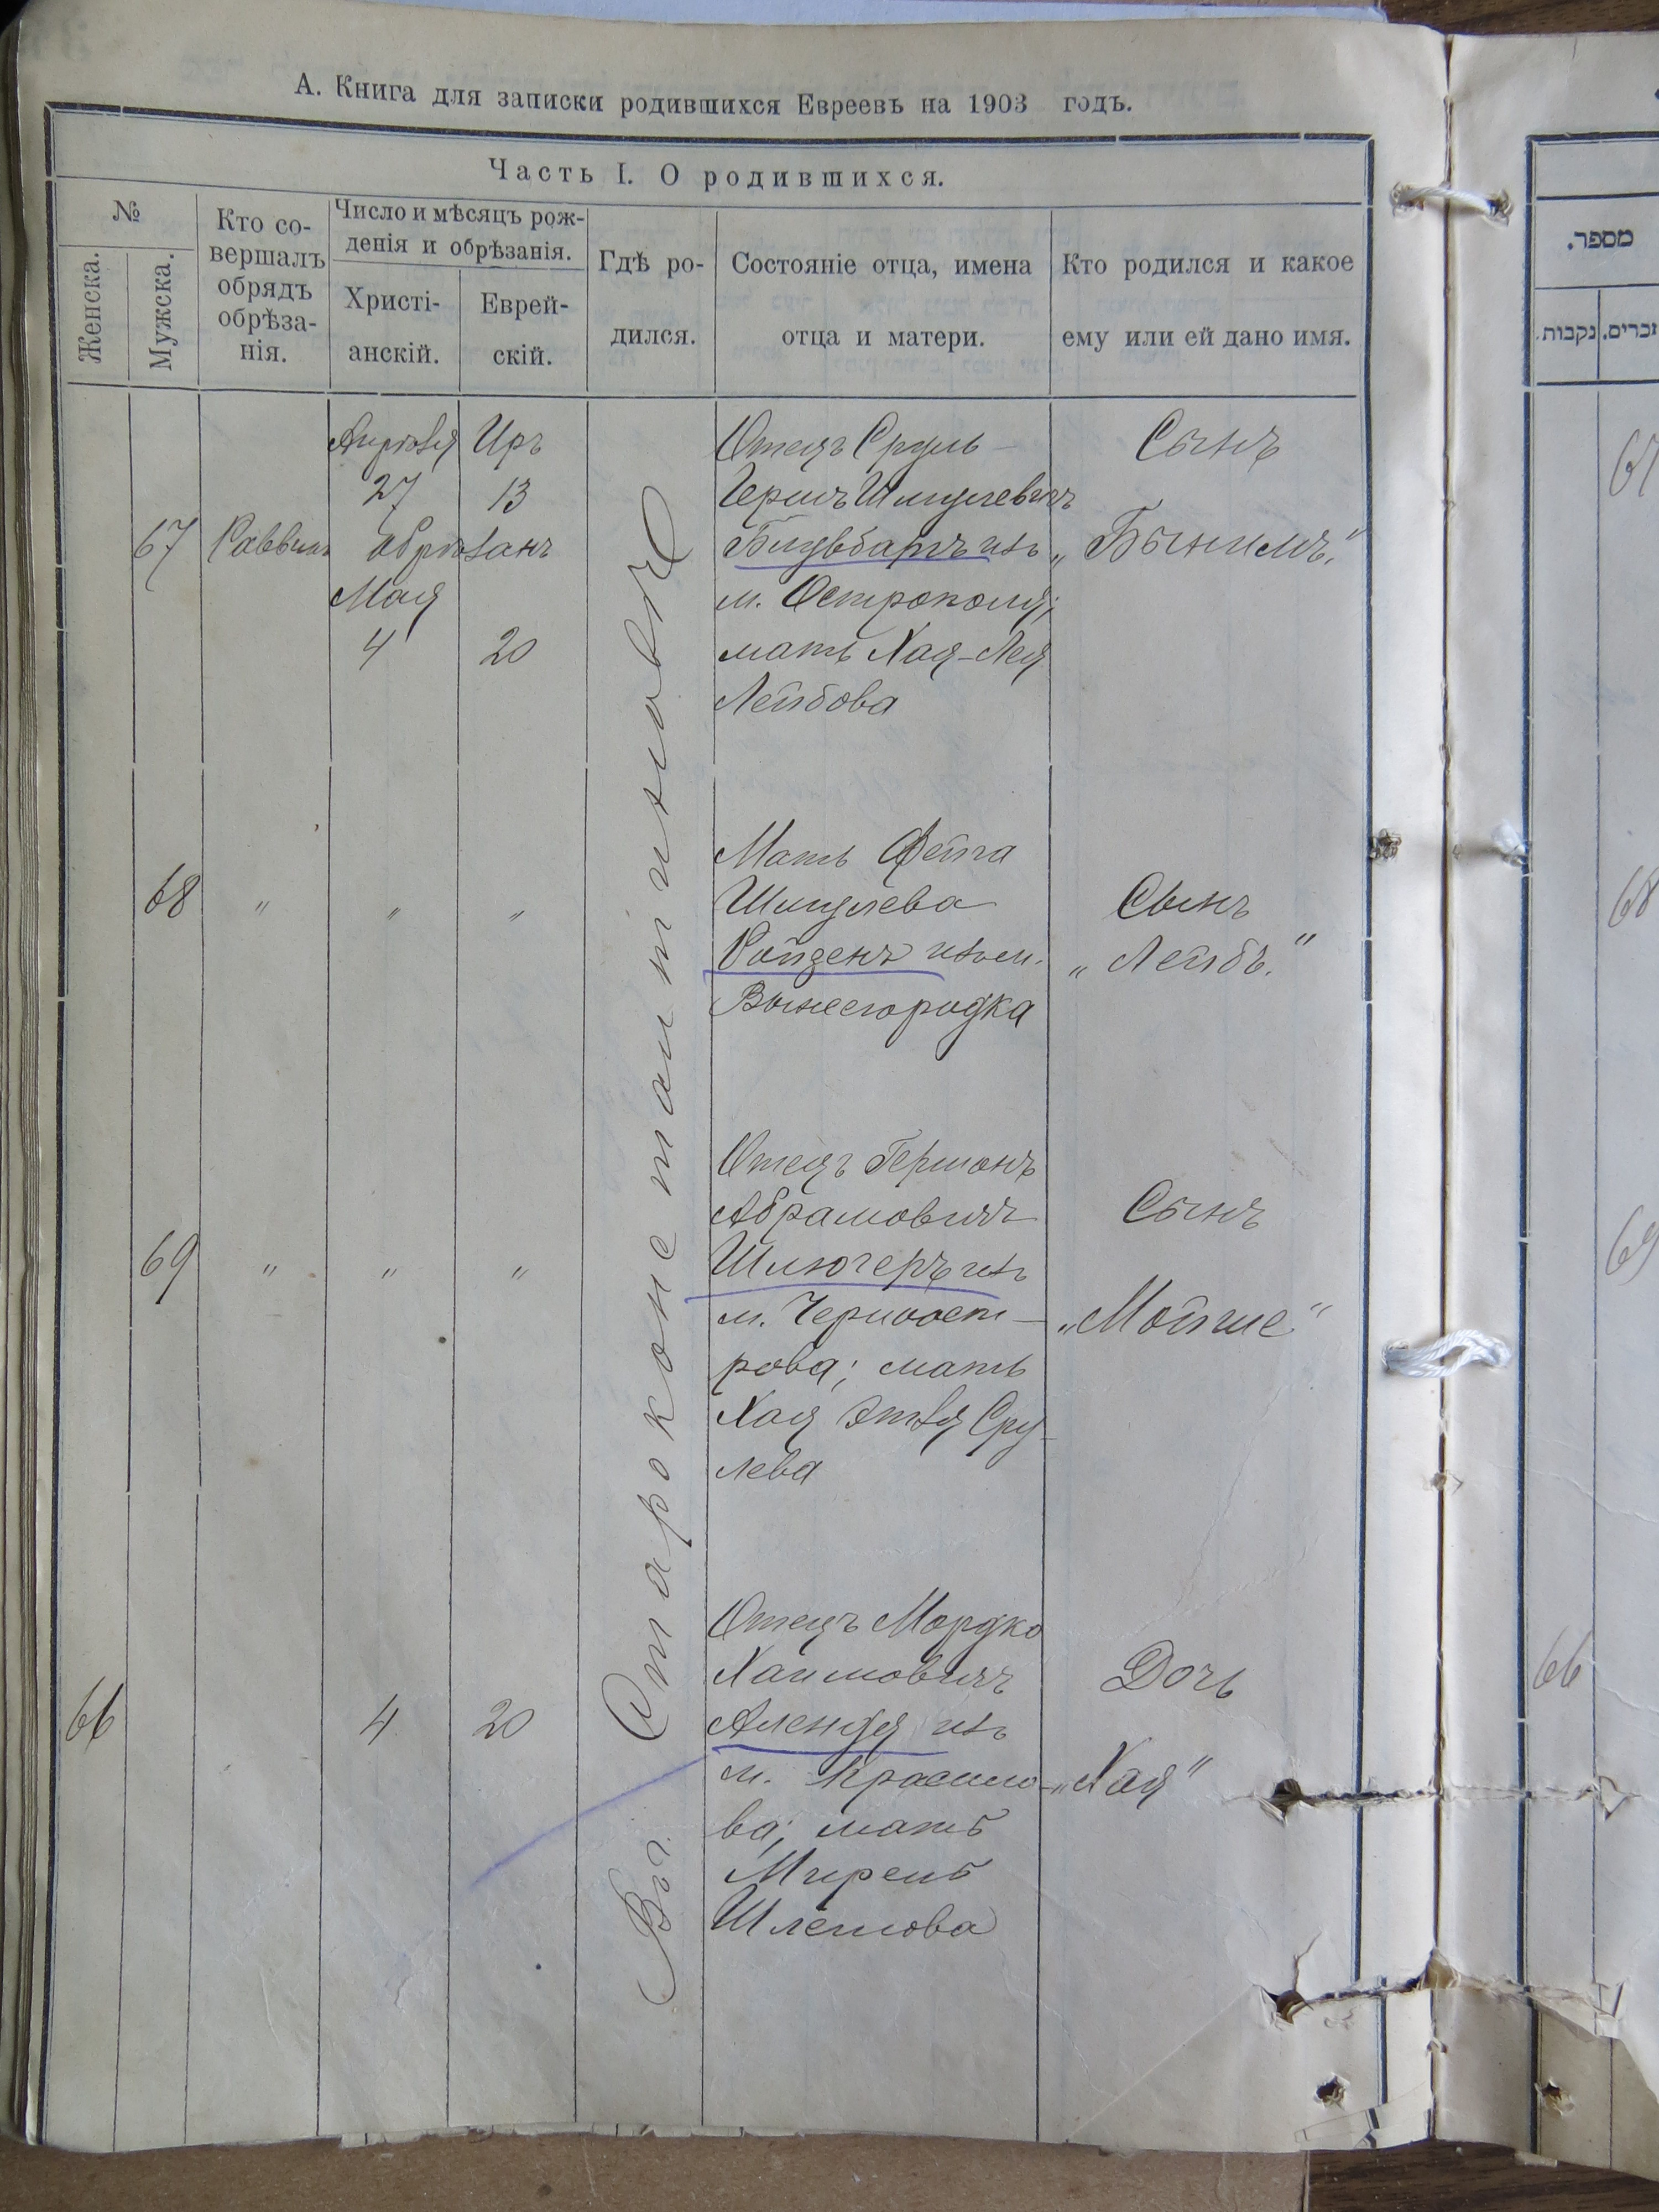 А. Книга для записки родившихся Евреевъ на 1903 годъ.
Часть I. О родившихся.
№
Женска.
Мужска.
Кто со-
вершалъ
обрядъ
обрѣза-
нія.
Число и мѣсяцъ рож-
денія и обрѣзанія.
Христі-
анскій.
Еврей-
скій.
Гдѣ ро-
дился.
Состояніе отца, имена
отца и матери.
Кто родился и какое
ему или ей дано имя.
67
Раввинъ
Апрѣля Иръ
27 13
обрѣзанъ
Мая
4 20
Отецъ Сруль-
Гершъ Шмулевичъ
из
м. Острополя;
мать Хая-Лея
Лейбова
Сынъ
„Бынимъ."
68
" " "
Мать Фейга
Шмулева
Ройзенъ изъ м.
Вышегородка
Сынъ
„Лейбъ."
69
" " "
Отецъ Гершонъ
Абрамовичъ
Шлюгеръ изъ
м. Черноост-
рова; мать
Хая Этля Сру-
лева
Сынъ
„Мойше"
66
4 20
Отецъ Мордко
Хаимовичъ
изъ
м. Красило-
ва; мать
Мирель
Шлемова
Дочь
„Хая"
Въ г. Староконстантиновѣ
מספר.
נקבות.
זכרים.
67
68
69
66